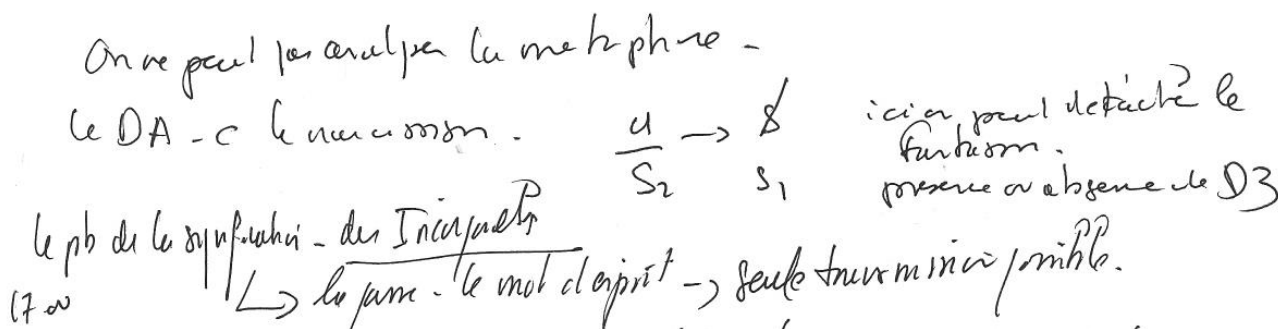 On ne peut pas analyser la métaphore -
Le DA - c le narcissism. a/S2 → $/S1 ici on peut détaché le
fantasm.
présence ou absence de D3
le pb de la signification - des
↳ la passe - le mot d'esprit → seule transmission possible.
17 00